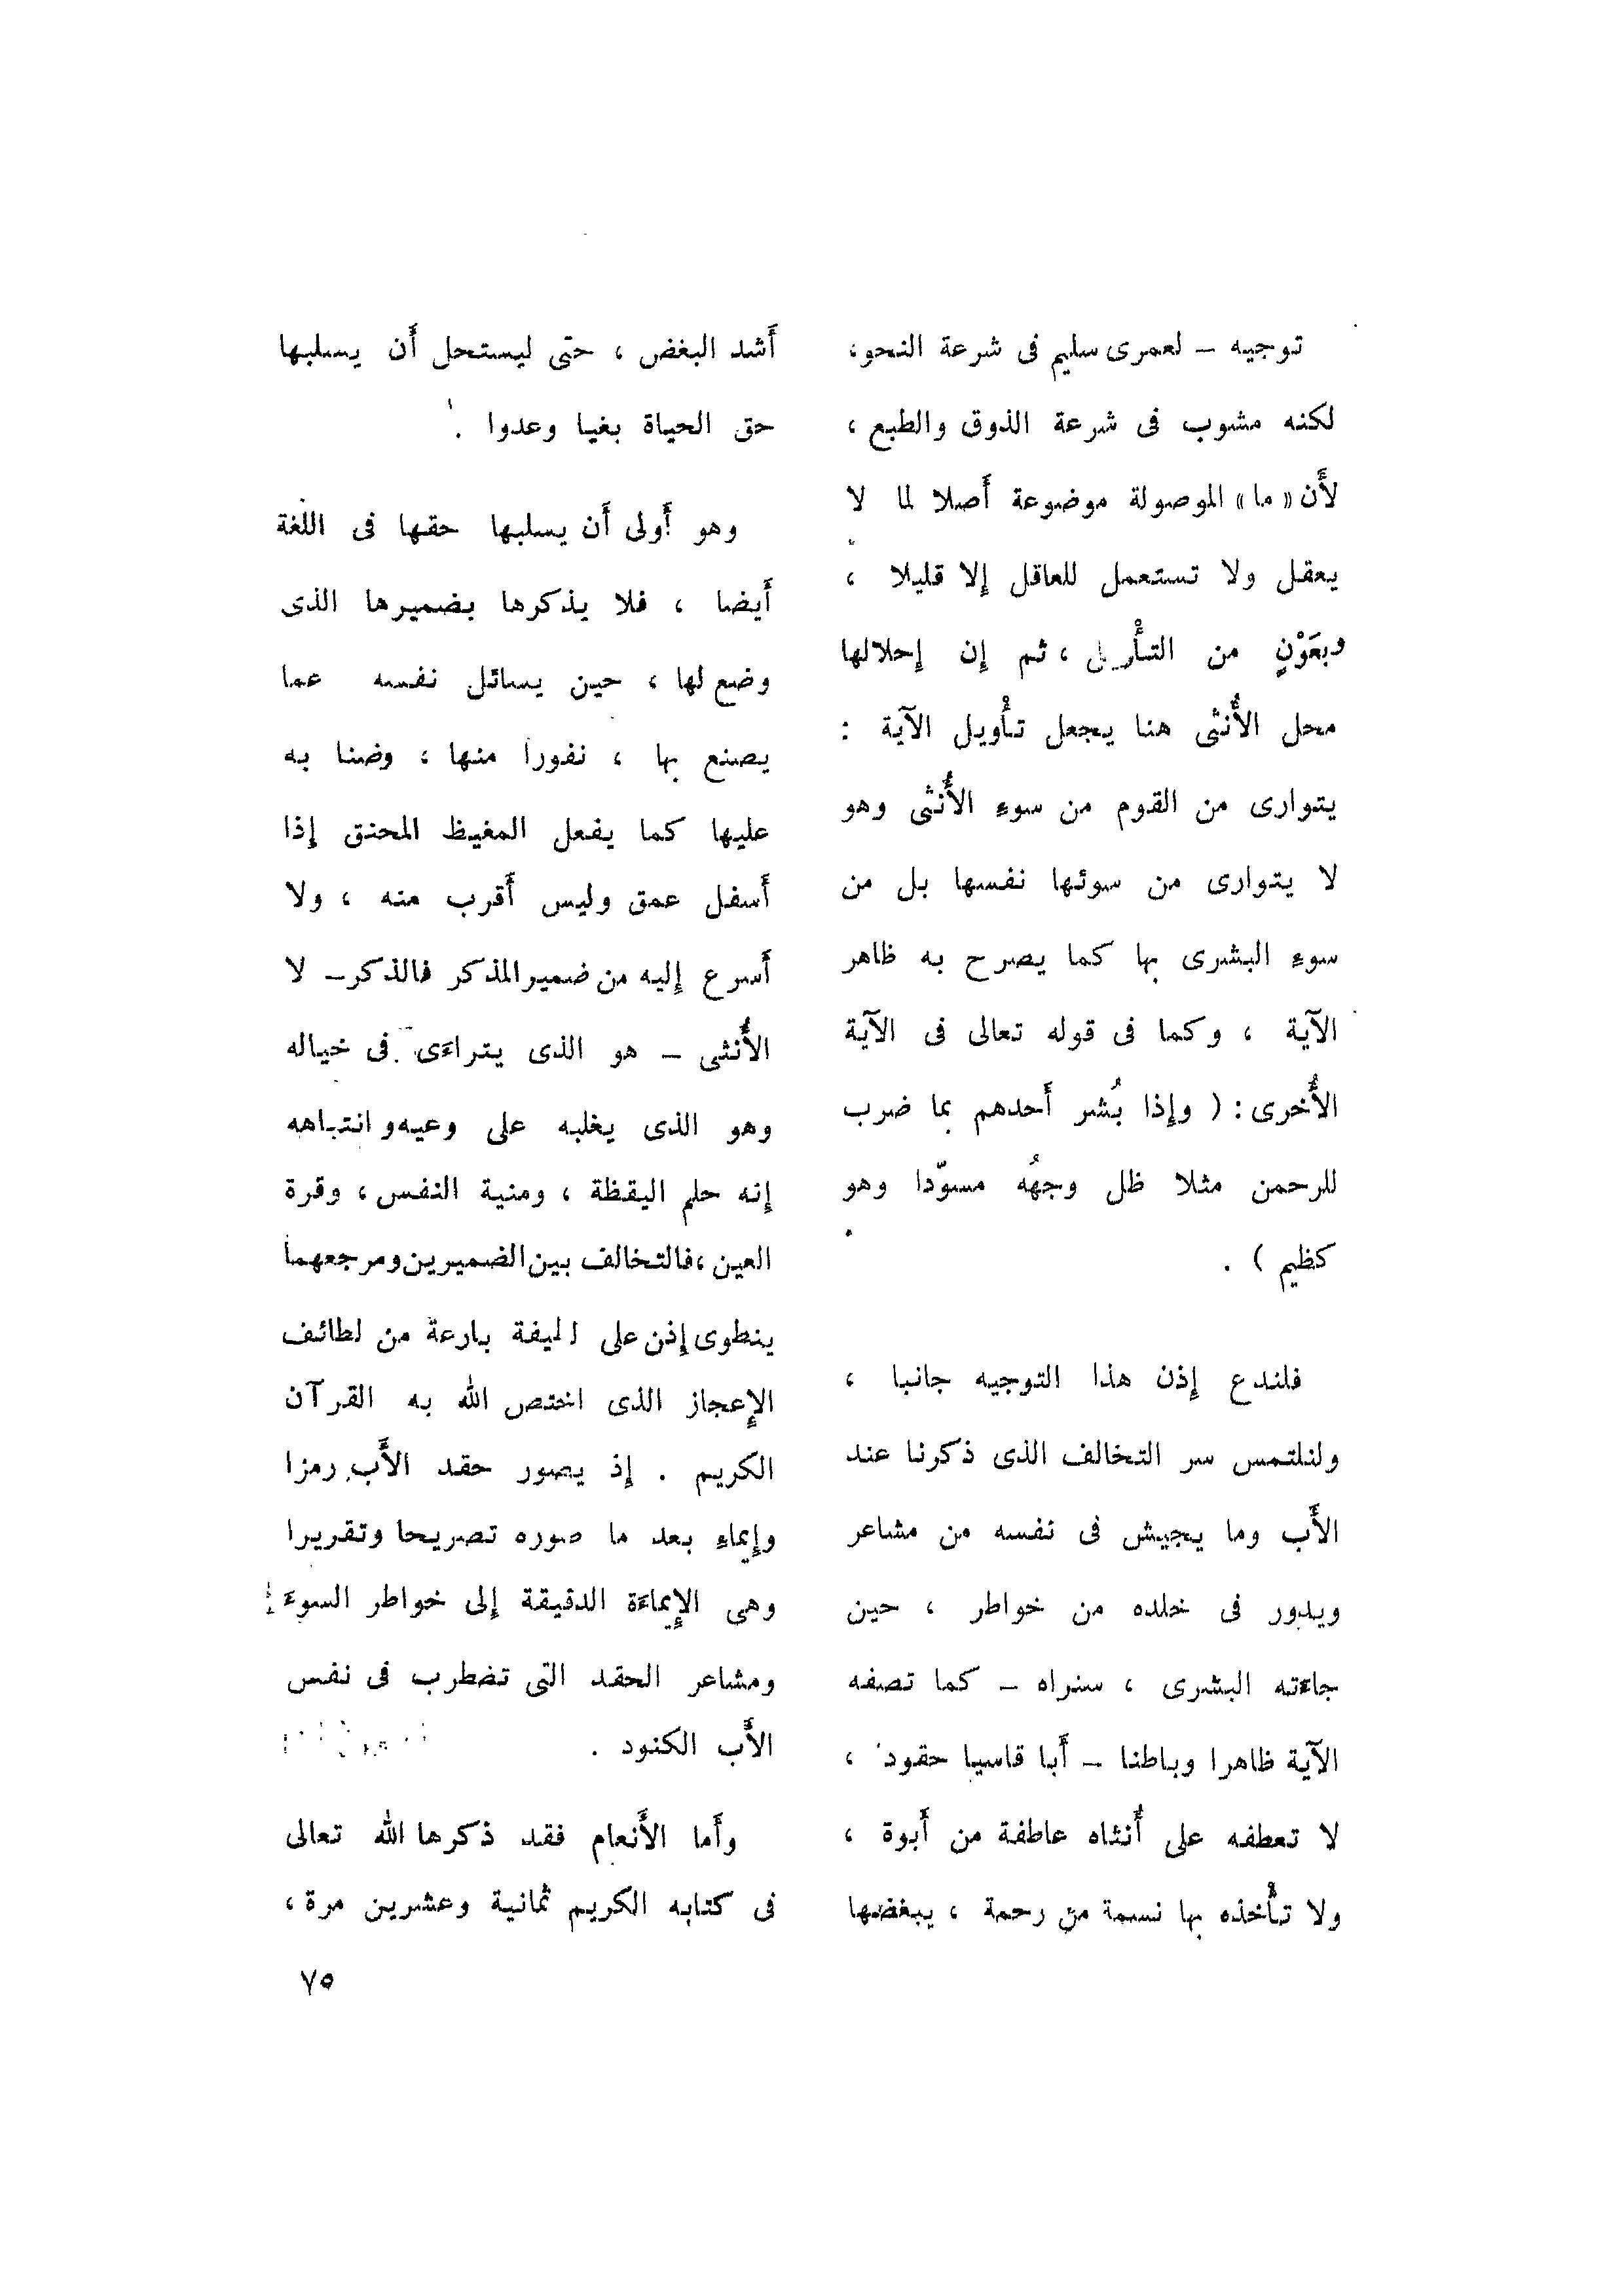 توجيه – لعمرى سليم فى شرعة النحو،
لكنه مشوب فى شرعة الذوق والطبع ،
لأَن «ما» الموصولة موضوعة أَصلا لما لا
يعقل ولا تستعمل للعاقل إلا قليلا ،
وبعَوْنٍ من التأْويل ، ثم إن إحلالها
محل الأُنثى هنا يجعل تأْويل الآية :
يتوارى من القوم من سوءِ الأُنثى وهو
لا يتوارى من سوئها نفسها بل من
سوءِ البشرى بها كما يصرح به ظاهر
الآية ، وكما فى قوله تعالى فى الآية
الأُخرى : ( وإِذا بُشر أَحدهم بما ضرب
للرحمن مثلا ظل وجهُه مسوّدا وهو
كظيم ) .
فلندع إِذن هذا التوجيه جانبا ،
ولنلتمس سر التخالف الذى ذكرنا عند
الأَب وما يجيش فى نفسه من مشاعر
ويدور فى خلده من خواطر ، حين
جاءته البشرى ، سنراه – كما تصفه
الآية ظاهرا وباطنا – أَبا قاسيا حقودا ،
لا تعطفه على أُنثاه عاطفة من أَبوة ،
ولا تأْخذه بها نسمة من رحمة ، يبغضها
أَشد البغض ، حتى ليستحل أَن يسلبها
حق الحياة بغيا وعدوا .
وهو أَولى أَن يسلبها حقها فى اللغة
أَيضا ، فلا يذكرها بضميرها الذى
وضع لها ، حين يسائل نفسه عما
يصنع بها ، نفورا منها ، وضنا به
عليها كما يفعل المغيظ المحنق إِذا
أَسفل عمق وليس أَقرب منه ، ولا
أَسرع إِليه من ضمير المذكر فالذكر – لا
الأُنثى – هو الذى يتراءَى فى خياله
وهو الذى يغلبه على وعيه وانتباهه
إِنه حلم اليقظة ، ومنية النفس ، وقرة
العين ، فالتخالف بين الضميرين ومرجعهما
ينطوى إِذن على لطيفة بارعة من لطائف
الإِعجاز الذى اختص الله به القرآن
الكريم . إِذ يصور حقد الأَب رمزا
وإِيماءِ بعد ما صوره تصريحا وتقريرا
وهى الإِيماءَة الدقيقة إِلى خواطر السوءَ
ومشاعر الحقد التى تضطرب فى نفس
الأَب الكنود .
وأَما الأَنعام فقد ذكرها الله تعالى
فى كتابه الكريم ثمانية وعشرين مرة ،
٧٥